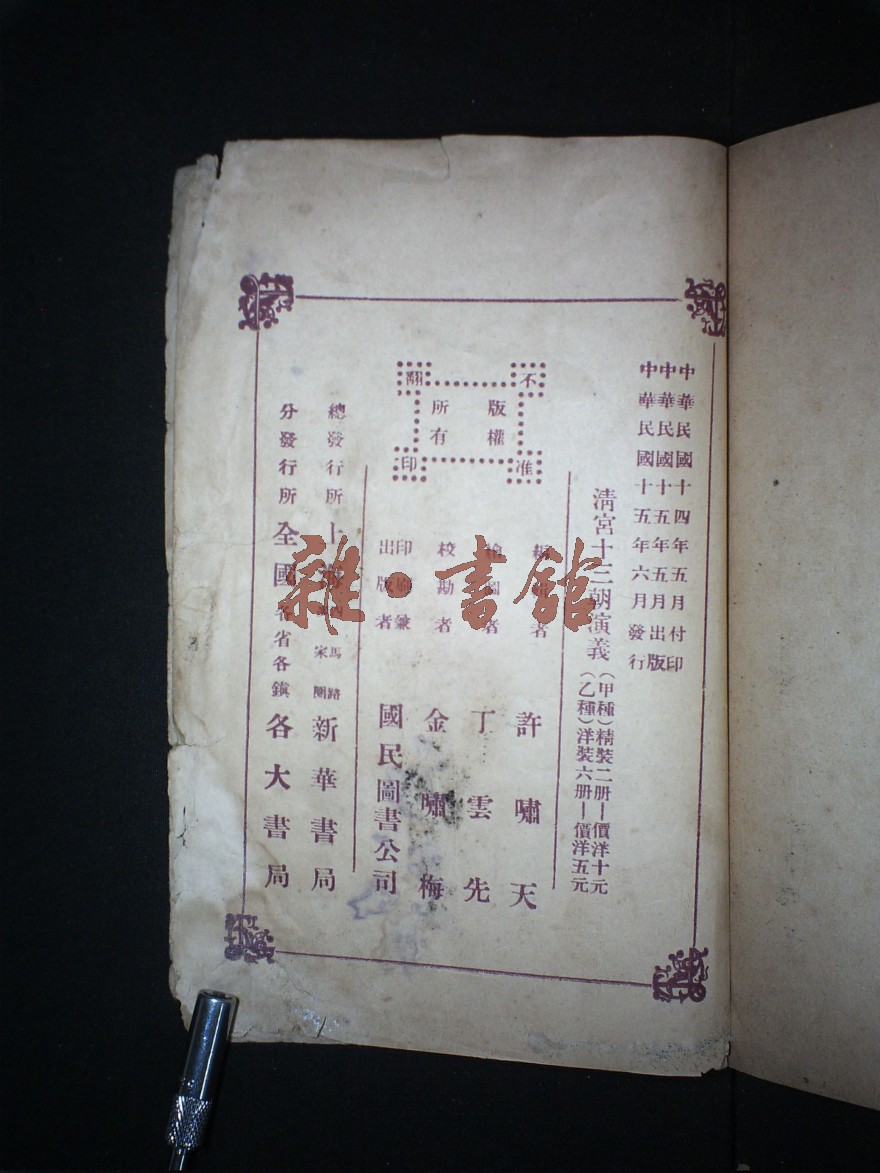 中華民國十四年五月付印
中華民國十五年五月出版
中華民國十五年六月發行
清宮十三朝演義
(甲種)精裝二册—價洋十元
(乙種)洋裝六册—價洋五元
不准翻印
版權
所有
者 許嘯天
者 丁雲先
校勘者 金嘯梅
印刷兼
出版者
國民圖書公司
總發行所 上海 四馬路
家圈
新華書局
分發行所 全國各省各鎭 各大書局
雜·書館